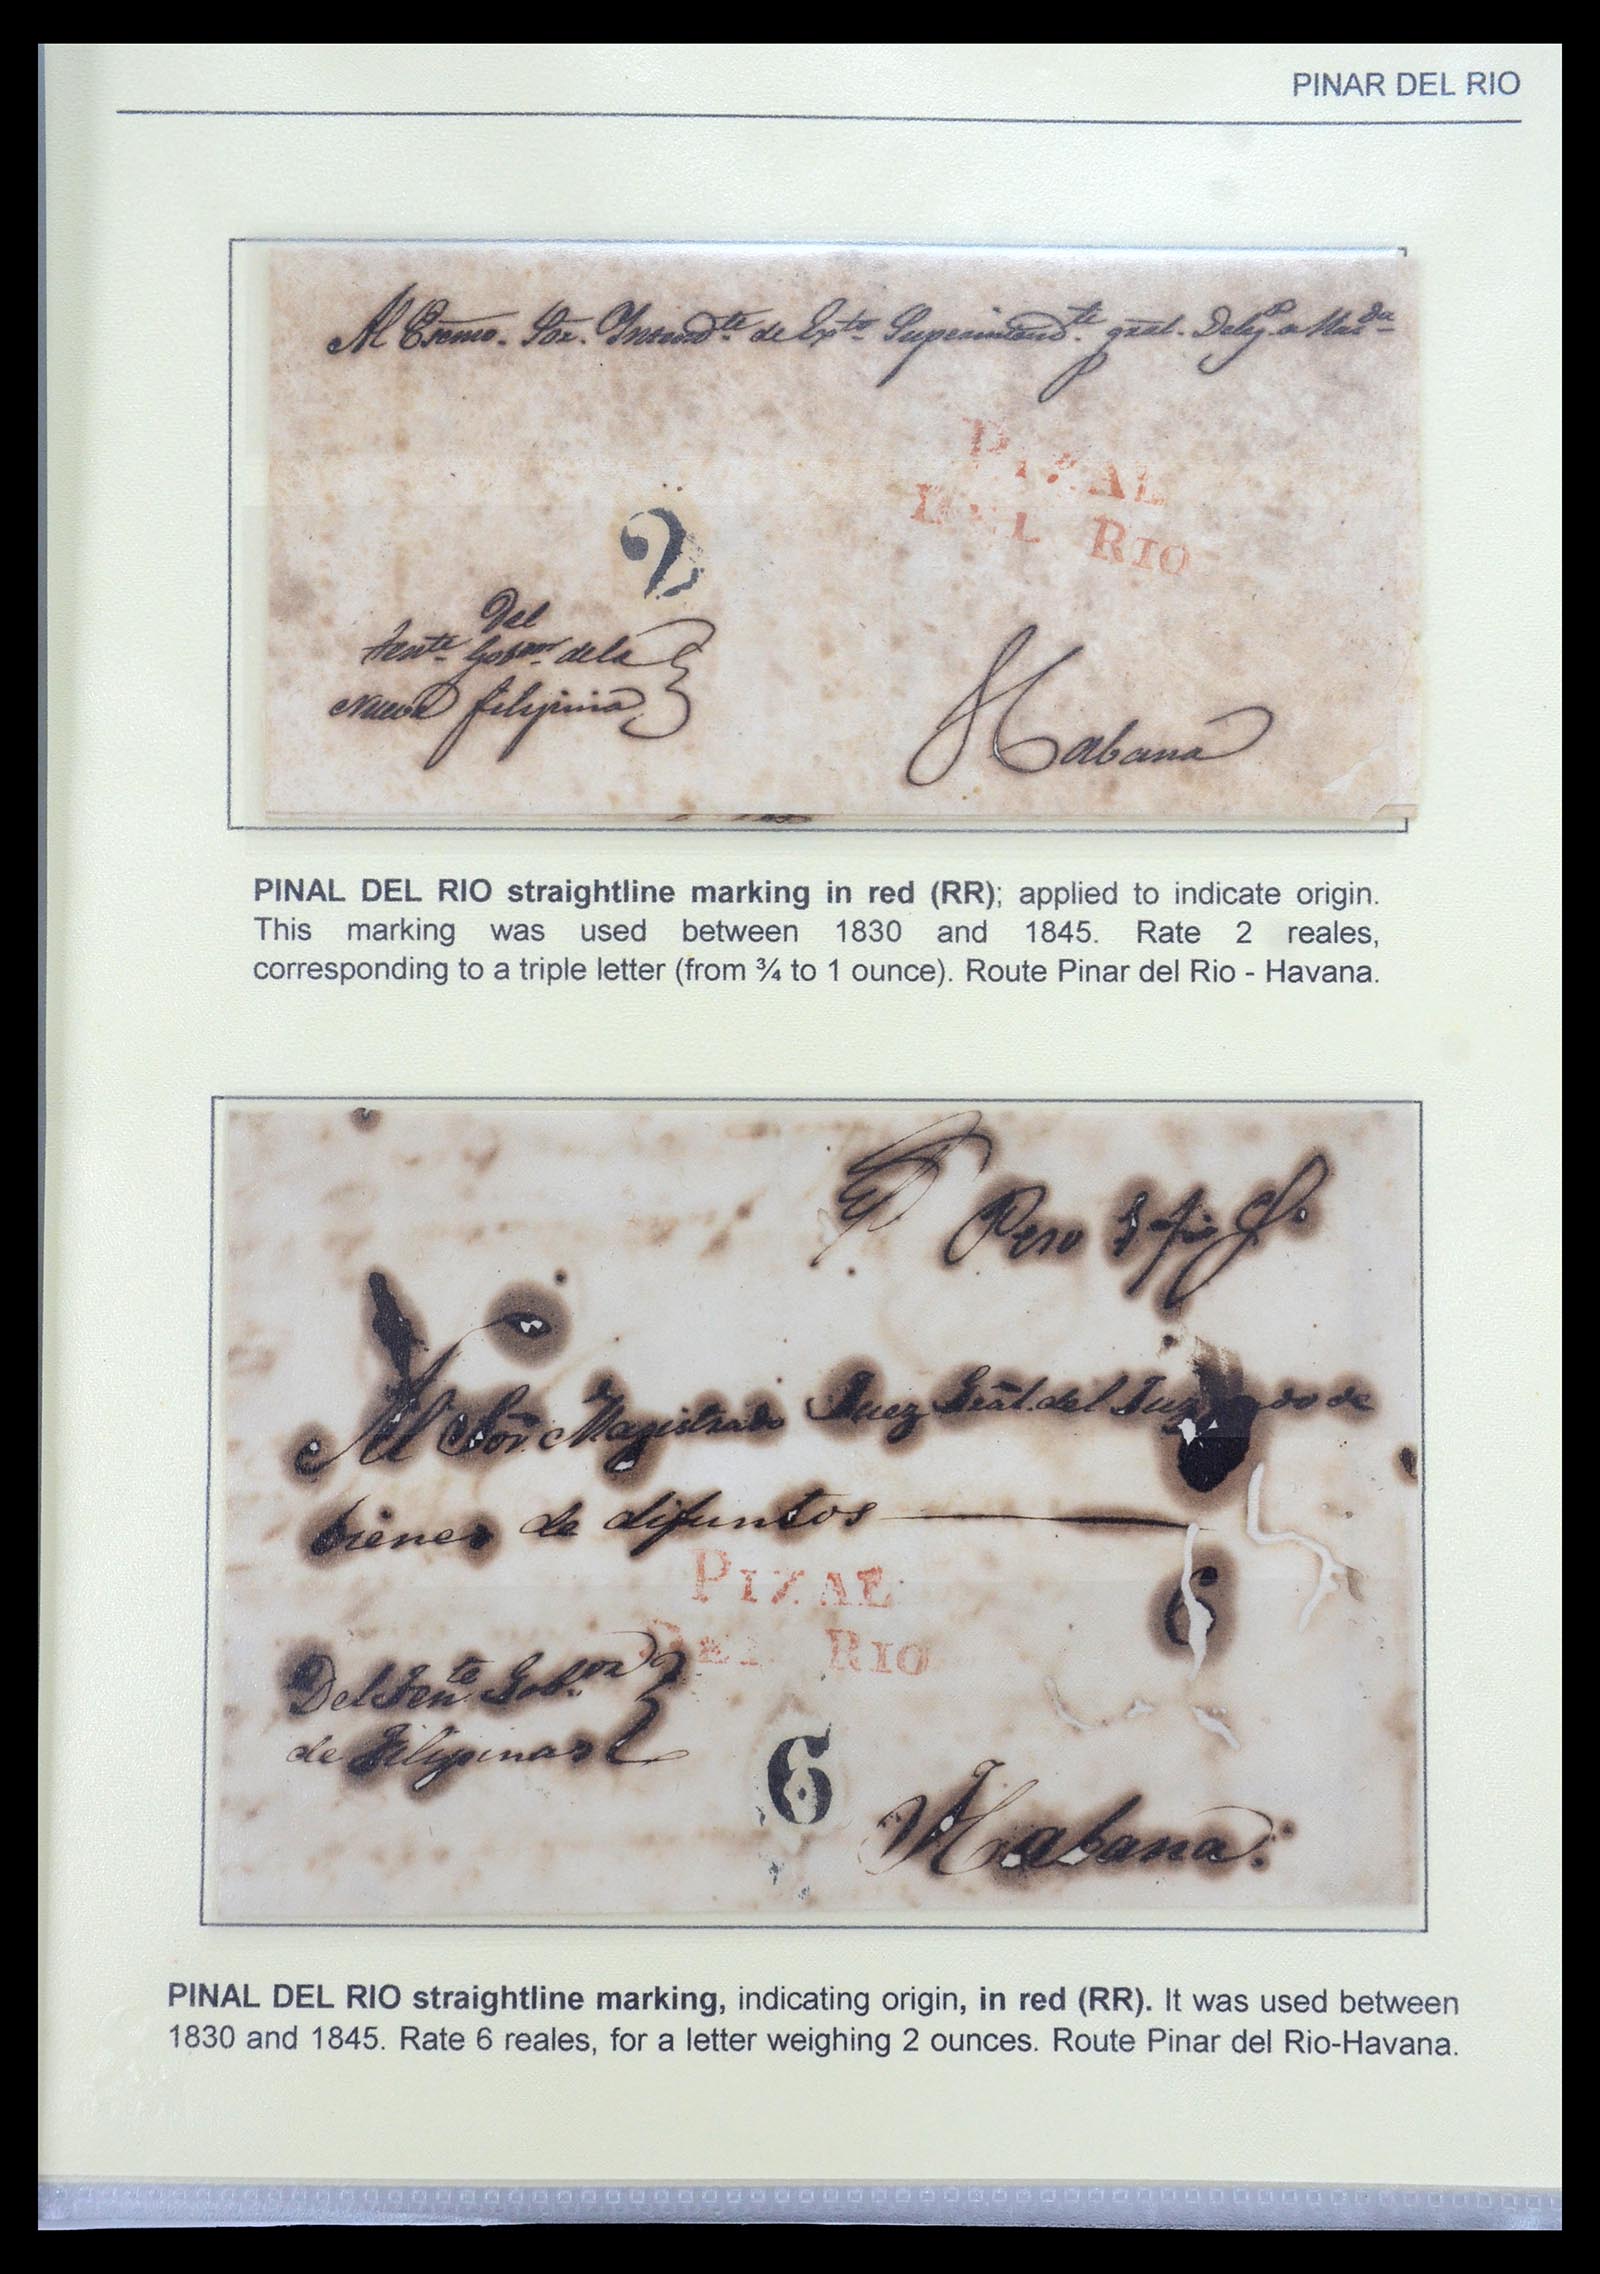 PINAR DEL RIO
Al Exmo. Sor. Intend.te de Ex.to Superintend.te gral. Deleg.do Haz.da
PIZAL
DEL RIO
2
Del
Tente. Gobor. de la
Nueva Filipina
Habana
PINAL DEL RIO straightline marking in red (RR); applied to indicate origin.
This marking was used between 1830 and 1845. Rate 2 reales,
corresponding to a triple letter (from ¾ to 1 ounce). Route Pinar del Rio - Havana.
Peso
Al Sór. Magistrado Juez Gràl. del Juzgado de
bienes de difuntos
PIZAL
DEL RIO
6
Del Tente. Gobor.
de Filipinas
6
Habana.
PINAL DEL RIO straightline marking, indicating origin, in red (RR). It was used between
1830 and 1845. Rate 6 reales, for a letter weighing 2 ounces. Route Pinar del Rio-Havana.